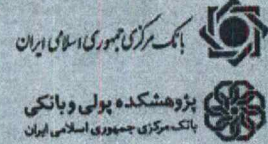 بانک مرکزی جمهوری اسلامی ایران
پژوهشکده پولی و بانکی
بانک مرکزی جمهوری اسلامی ایران